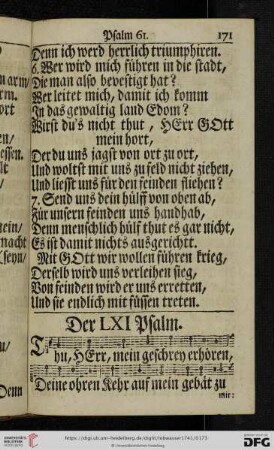 Psalm 61. 171
Denn ich werd herrlich triumphiren.
6. Wer wird mich führen in die stadt,
Die man also bevestigt hat?
Wer leitet mich, damit ich komm
In das gewaltig land Edom?
Wirst du's nicht thut, HErr GOtt
mein hort,
Der du uns jagst von ort zu ort,
Und woltst mit uns zu feld nicht ziehen,
Und liesst uns für den feinden fliehen?
7. Send uns dein hülff von oben ab,
Für unsern feinden uns handhab,
Denn menschlich hülf thut es gar nicht,
Es ist damit nichts ausgericht.
Mit GOtt wir wollen führen krieg,
Derselb wird uns verleihen sieg,
Von feinden wird er uns erretten,
Und sie endlich mit füssen treten.
Der LXI Psalm.
Thu, HErr, mein geschrey erhören,
Deine ohren kehr auf mein gebät zu
mir:
n arm/
rm.
ort
en/
essen.
lt
/
ein/
nacht
(seyn/
n/
Denn